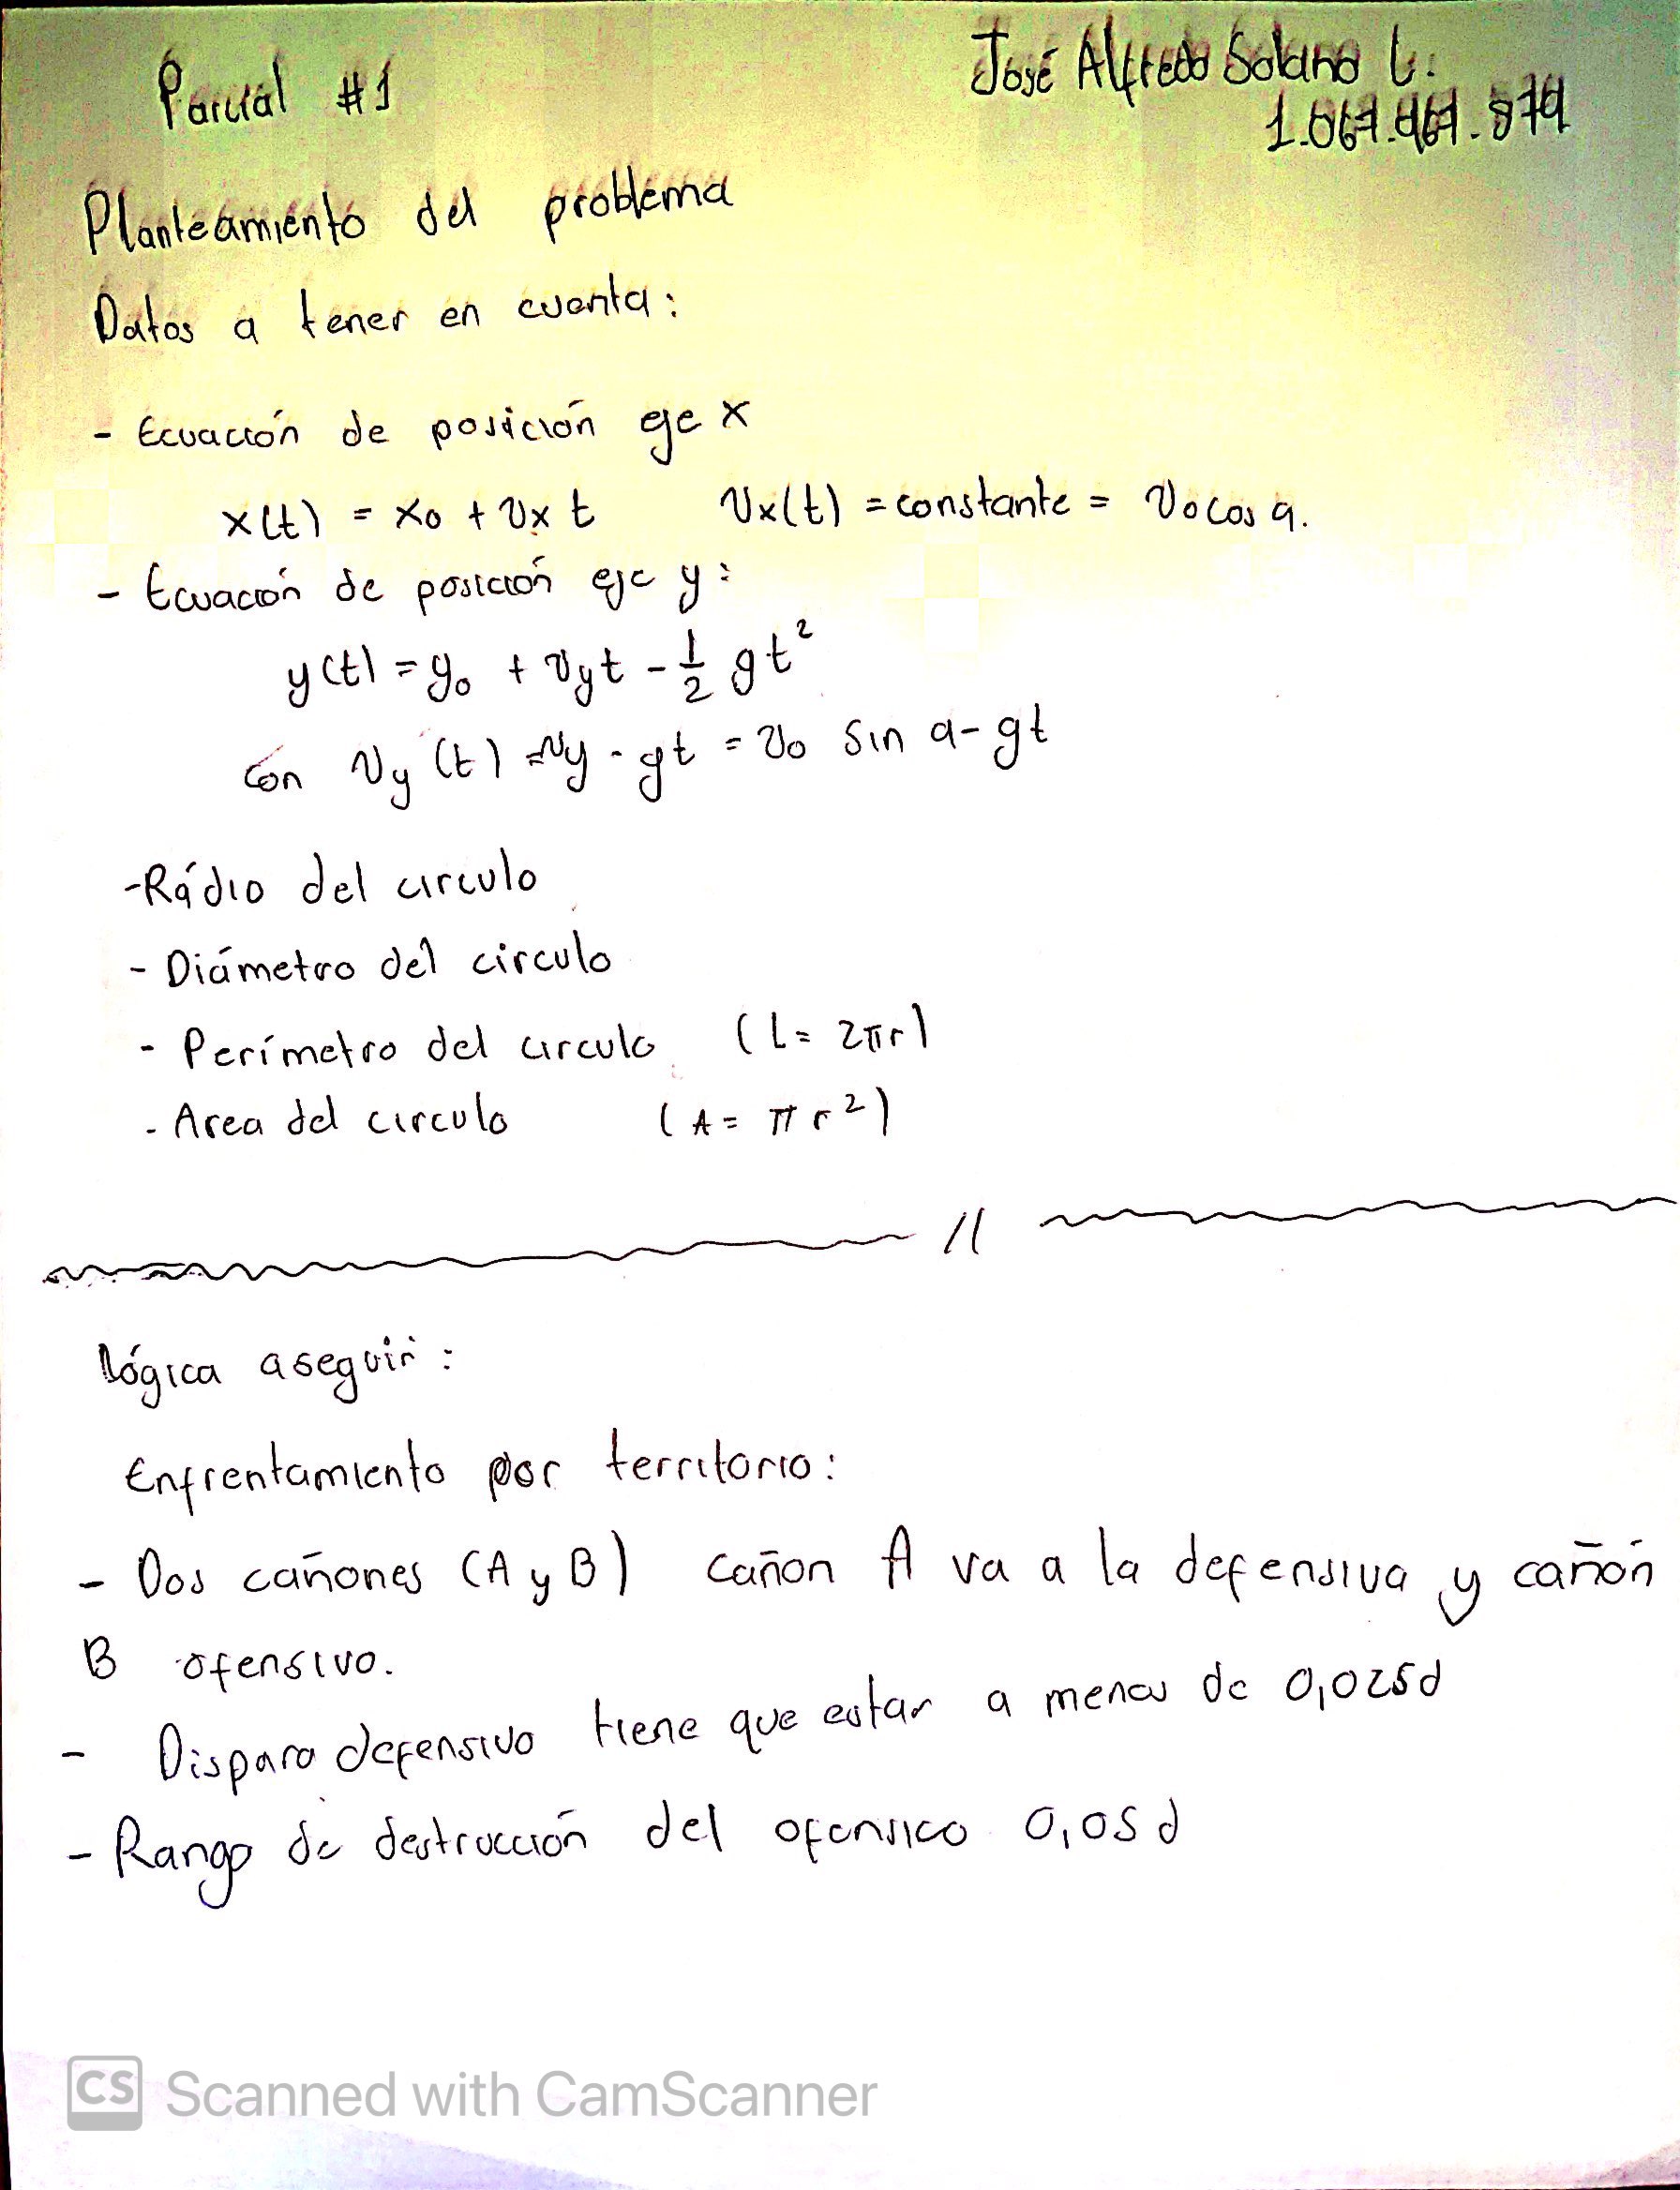 Parcial #1
José Alfredo Solano L.
Planteamiento del problema
Datos a tener en cuenta:
- Ecuación de posición eje x
x(t) = xo + vx t    vx(t) = constante = vo cos a.
- Ecuación de posición eje y:
y(t) = yo + vyt - 1/2 gt²
con vy (t) = vy - gt = vo sin a - gt
- Rádio del circulo
- Diámetro del circulo
- Perímetro del circulo (L = 2πr)
- Area del circulo (A = π r²)
//
lógica aseguir:
Enfrentamiento por territorio:
- Dos cañones (A y B) cañon A va a la defensiva y cañón
B ofensivo.
- Disparo defensivo tiene que estar a menos de 0,025d
- Rango de destrucción del ofensico 0,05 d
CS Scanned with CamScanner